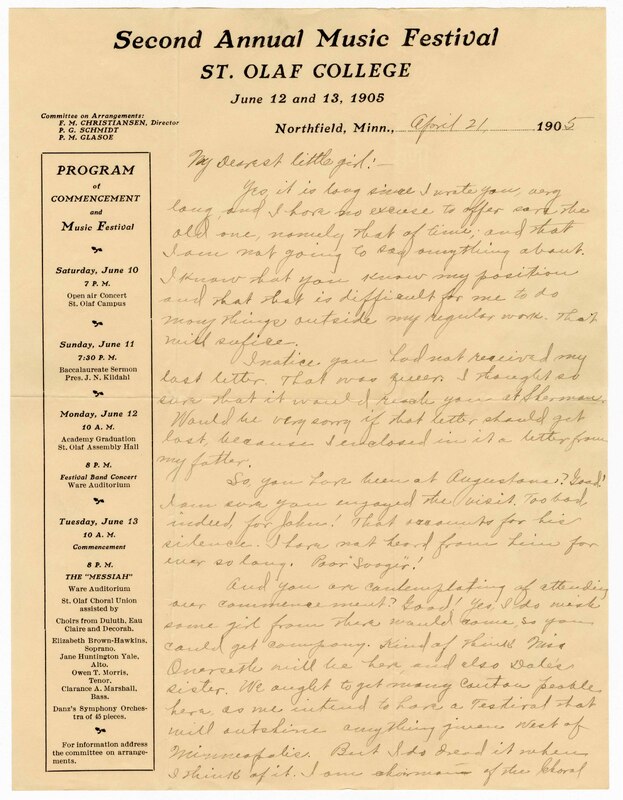 Second Annual Music Festival
ST. OLAF COLLEGE
June 12 and 13, 1905
Committee on Arrangements:
F. M. CHRISTIANSEN, Director
P. G. SCHMIDT
P. M. GLASOE
Northfield, Minn., April 21, 1905
PROGRAM
of
COMMENCEMENT
and
Music Festival
Saturday, June 10
7 P. M.
Open air Concert
St. Olaf Campus
Sunday, June 11
7:30 P. M.
Baccalaureate Sermon
Pres. J. N. Kildahl
Monday, June 12
10 A. M.
Academy Graduation
St. Olaf Assembly Hall
8 P. M.
Festival Band Concert
Ware Auditorium
Tuesday, June 13
10 A. M.
Commencement
8 P. M.
THE "MESSIAH"
Ware Auditorium
St. Olaf Choral Union
assisted by
Choirs from Duluth, Eau
Claire and Decorah.
Elizabeth Brown-Hawkins,
Soprano.
Jane Huntington Yale,
Alto.
Owen T. Morris,
Tenor.
Clarance A. Marshall,
Bass.
Danz's Symphony Orches-
tra of 45 pieces.
For information address
the committee on arrange-
ments.
My Dearest little girl:-
Yes, it is long since I wrote you, very
long, and I have no excuse to offer save the
old one, namely that of time; and that
I am not going to say anything about.
I know that you know my position
and that that is difficult for me to do
many things outside my regular work. That
will sufice.
I notice you had not received my
last letter. That was queer. I thought so
sure that it would reach you at Sherman.
Would be very sorry if that letter should get
lost, because I enclosed in it a letter from
my father.
So, you have been at Augustana? Good!
I am sure you enjoyed the visit. Too bad,
indeed, for John! That accounts for his
silence. I have not heard from him for
ever so long. Poor
And you are contemplating of attending
our commencement? Good! Yes, I do wish
some girl from there would come, so you
could get company. Kind of think Miss
Overseth will be here and also Dale's
sister. We ought to get many Canton people
here as we intend to have a Festival that
will outshine anything given West of
Minneapolis. But I do dread it when
I think of it. I am chairman of the Choral